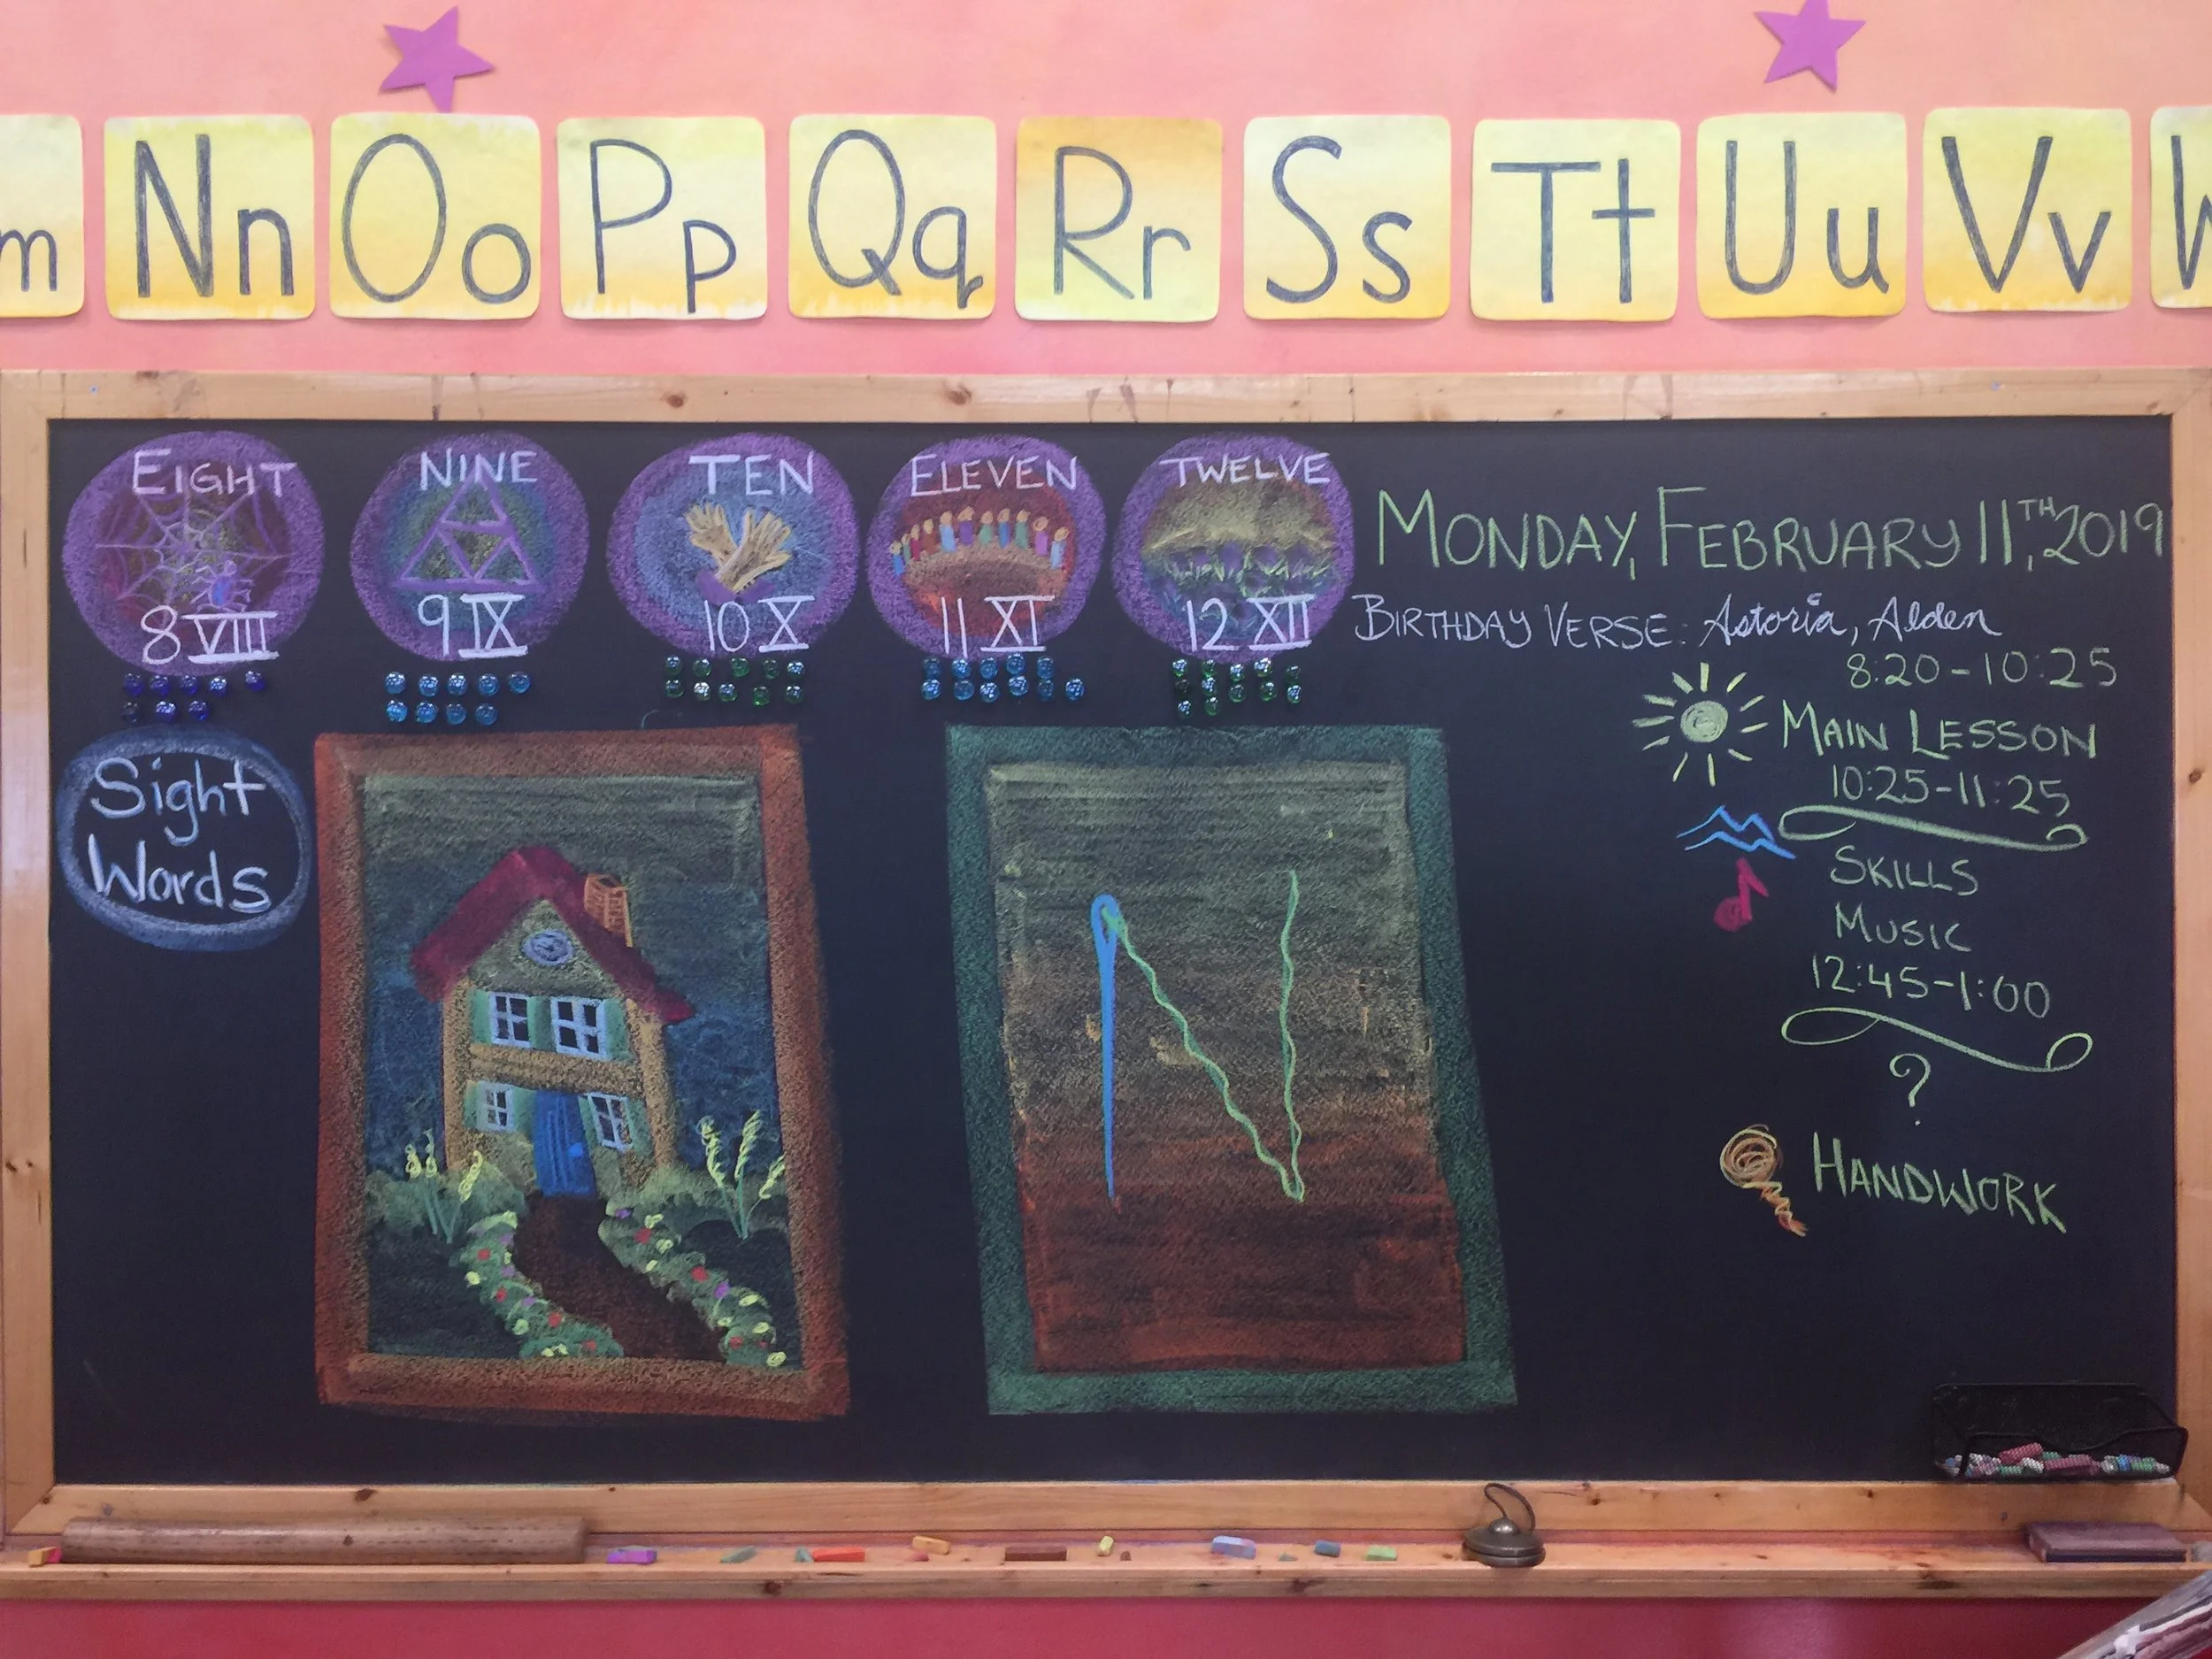 m Nn Oo Pp Qq Rr Ss Tt Uu Vv W
EIGHT NINE TEN ELEVEN TWELVE
8 VIII 9 IX 10 X 11 XI 12 XII
MONDAY, FEBRUARY 11TH, 2019
BIRTHDAY VERSE: Astoria, Alden
8:20-10:25
MAIN LESSON
10:25-11:25
SKILLS
MUSIC
12:45-1:00
?
HANDWORK
Sight
Words
N